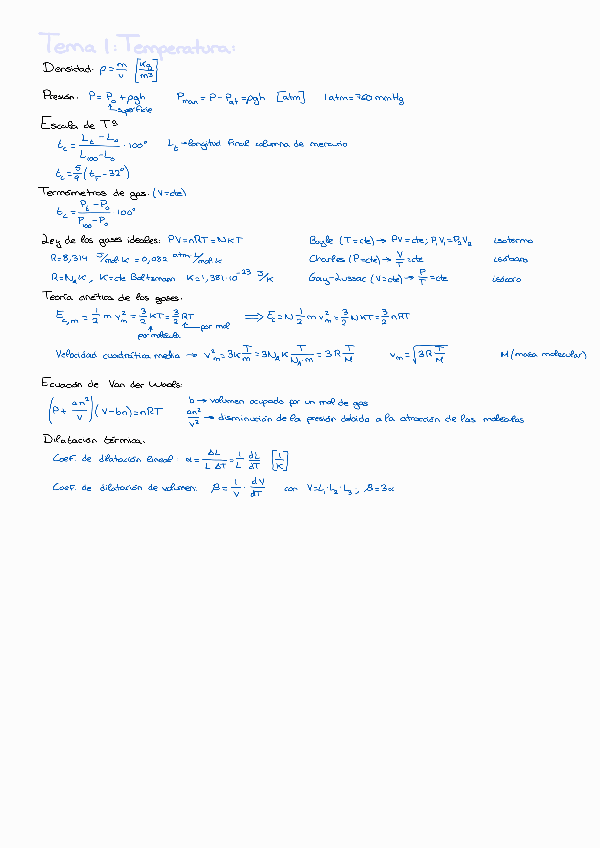 Tema 1: Temperatura:
Densidad: ρ = m/v [Kg/m3]
Presión: P = P₀ + ρgh    Pman = P - Pat = ρgh [atm]    1 atm = 760 mmHg
superficie
Escala de Tª
t_c = (L_t - L₀)/(L₁₀₀ - L₀) · 100°    L_t → longitud final columna de mercurio
t_c = 5/9 (t_F - 32°)
Termómetros de gas: (V=cte)
t_c = (P_t - P₀)/(P₁₀₀ - P₀) 100°
Ley de los gases ideales: PV = nRT = NKT    Boyle (T=cte) → PV = cte; P₁V₁ = P₂V₂    isotermo
R = 8,314 J/mol·K = 0,082 atm·L/mol·K    Charles (P=cte) → V/T = cte    isóbaro
R = N_A K, K = cte Boltzmann K = 1,381·10⁻²³ J/K    Gay-Lussac (V=cte) → P/T = cte    isócoro
Teoría cinética de los gases:
E_c,m = 1/2 m v²_m = 3/2 KT = 3/2 RT ⟹ E_c = N 1/2 m v²_m = 3/2 NKT = 3/2 nRT
por mol
por molécula
Velocidad cuadrática media → v²_m = 3K T/m = 3N_A K T/(N_A·m) = 3R T/M    v_m = √(3R T/M)    M (masa molecular)
Ecuación de Van der Waals:
(P + an²/V)(V - bn) = nRT    b → volumen ocupado por un mol de gas
an²/V² → disminución de la presión debido a la atracción de las moléculas
Dilatación térmica:
Coef. de dilatación lineal: α = ΔL/(L ΔT) = 1/L dL/dT [1/K]
Coef. de dilatación de volumen: β = 1/V · dV/dT con V = L₁·L₂·L₃, β = 3α